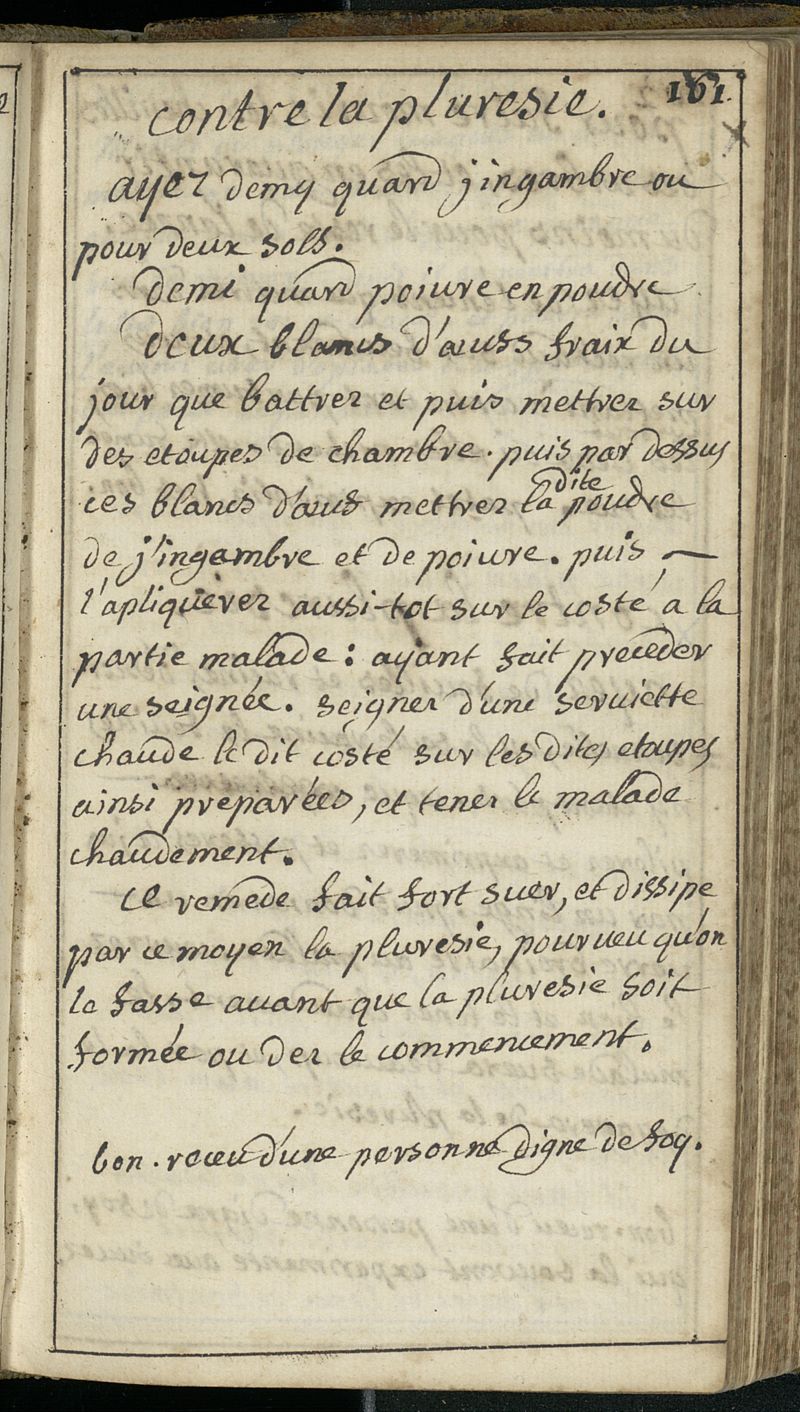 161.
contre la pluresie.
ayez demy quard j'ingambre ou
pour deux sols.
demi quard poiure en poudre
deux blancs d'œufs fraix du
jour que battrez et puis mettrez sur
des etoupes de chambre. puis par dessus
ces blancs d'œufs mettrez la dite poudre
de j'ingembre et de poiure. puis
l'apliquèrez aussi-tot sur le costé a la
partie malade : ayant fait preceder
une seignée. seignez d'une seruiette
chaude le dit costé sur les dites etoupes
ainsi preparées, et tenez le malade
chaudement.
Ce remede fait fort suer, et dissipe
par ce moyen la pluresie, pourueu qu'on
le fasse auant que la pluresie soit
formée ou dez le commencement.
bon. receu d'une personne digne de foy.